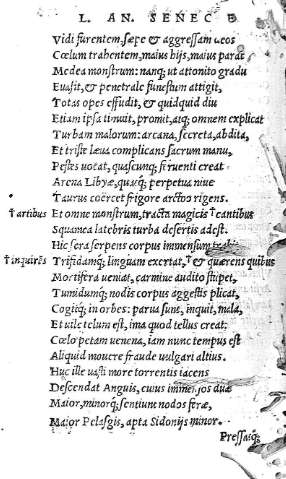 L. AN. SENECÆ
Vidi furentem, sæpe & aggressam deos
Cœlum trahentem, maius hijs, maius parat
Medea monstrum: nanq; ut attonito gradu
Euasit, & penetrale funestum attigit,
Totas opes effudit, & quidquid diu
Etiam ipsa timuit, promit, atq; omnem explicat
Turbam malorum: arcana, secreta, abdita,
Et triste læua complicans sacrum manu,
Pestes uocat, quascunq; feruenti creat
Arena Libyæ, quasq; perpetua niue
Taurus coërcet frigore arctos rigens.
† artibus Et omne monstrum, tracta magicis † cantibus
Squamea latebris turba desertis adest.
Hic sera serpens corpus immensum
† inquirēs Trifidamq; linguam exertat, † & quærens quibus
Mortifera ueniat, carmine audito stupet,
Tumidumq; nodis corpus aggestis plicat,
Cogitq; in orbes: parua sunt, inquit, mala,
Et uile telum est, ima quod tellus creat:
Cœlo petam uenena, iam nunc tempus est
Aliquid mouere fraude uulgari altius.
Huc ille uasti more torrentis iacens
Descendat Anguis, cuius immensos duæ
Maior, minorq; sentiunt nodos feræ,
Maior Pelasgis, apta Sidonijs minor.
Pressasq;